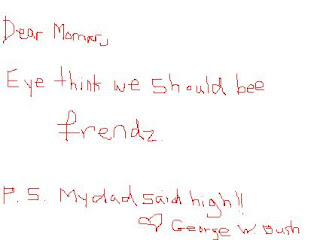 Dear
Eye think we should bee
frendz.
P. S. My dad said high!!
George W Bush